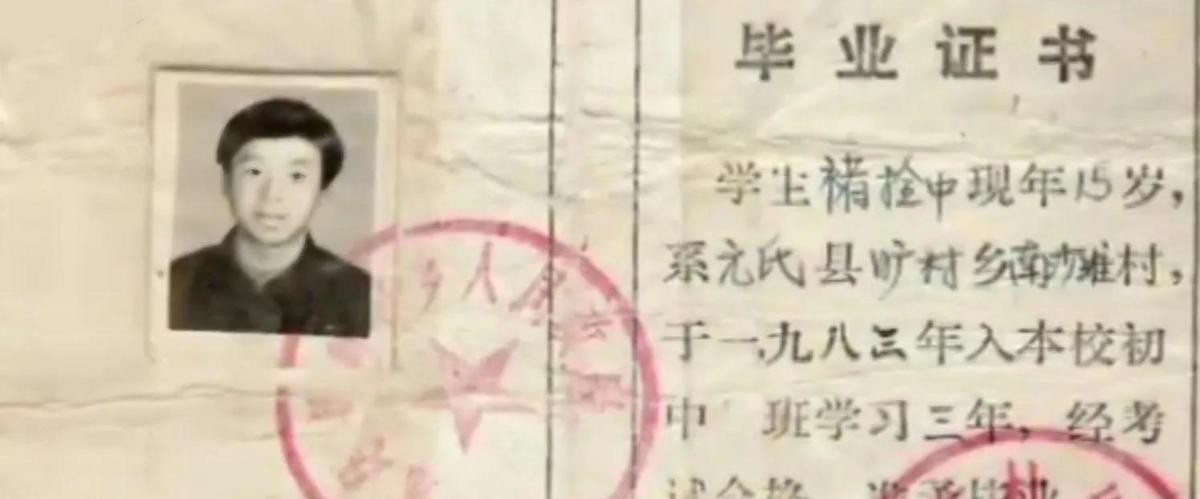 毕业证书
学生褚拴中现年15岁,
系元氏县旷村乡南 村,
于一九八三年入本校初
中 班学习三年,经考
试合格,准予毕业
乡人